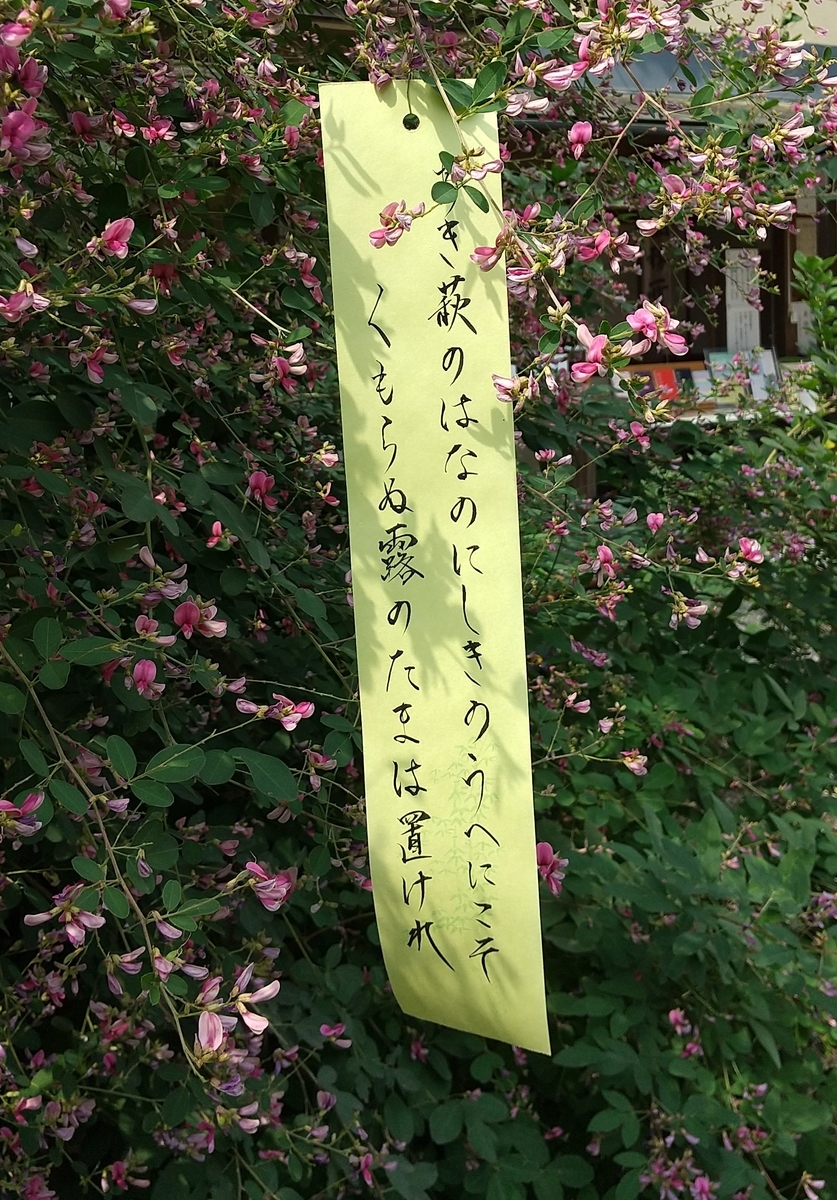 き萩のはなのにしきのうへにこそ
くもらぬ露のたまは置けれ